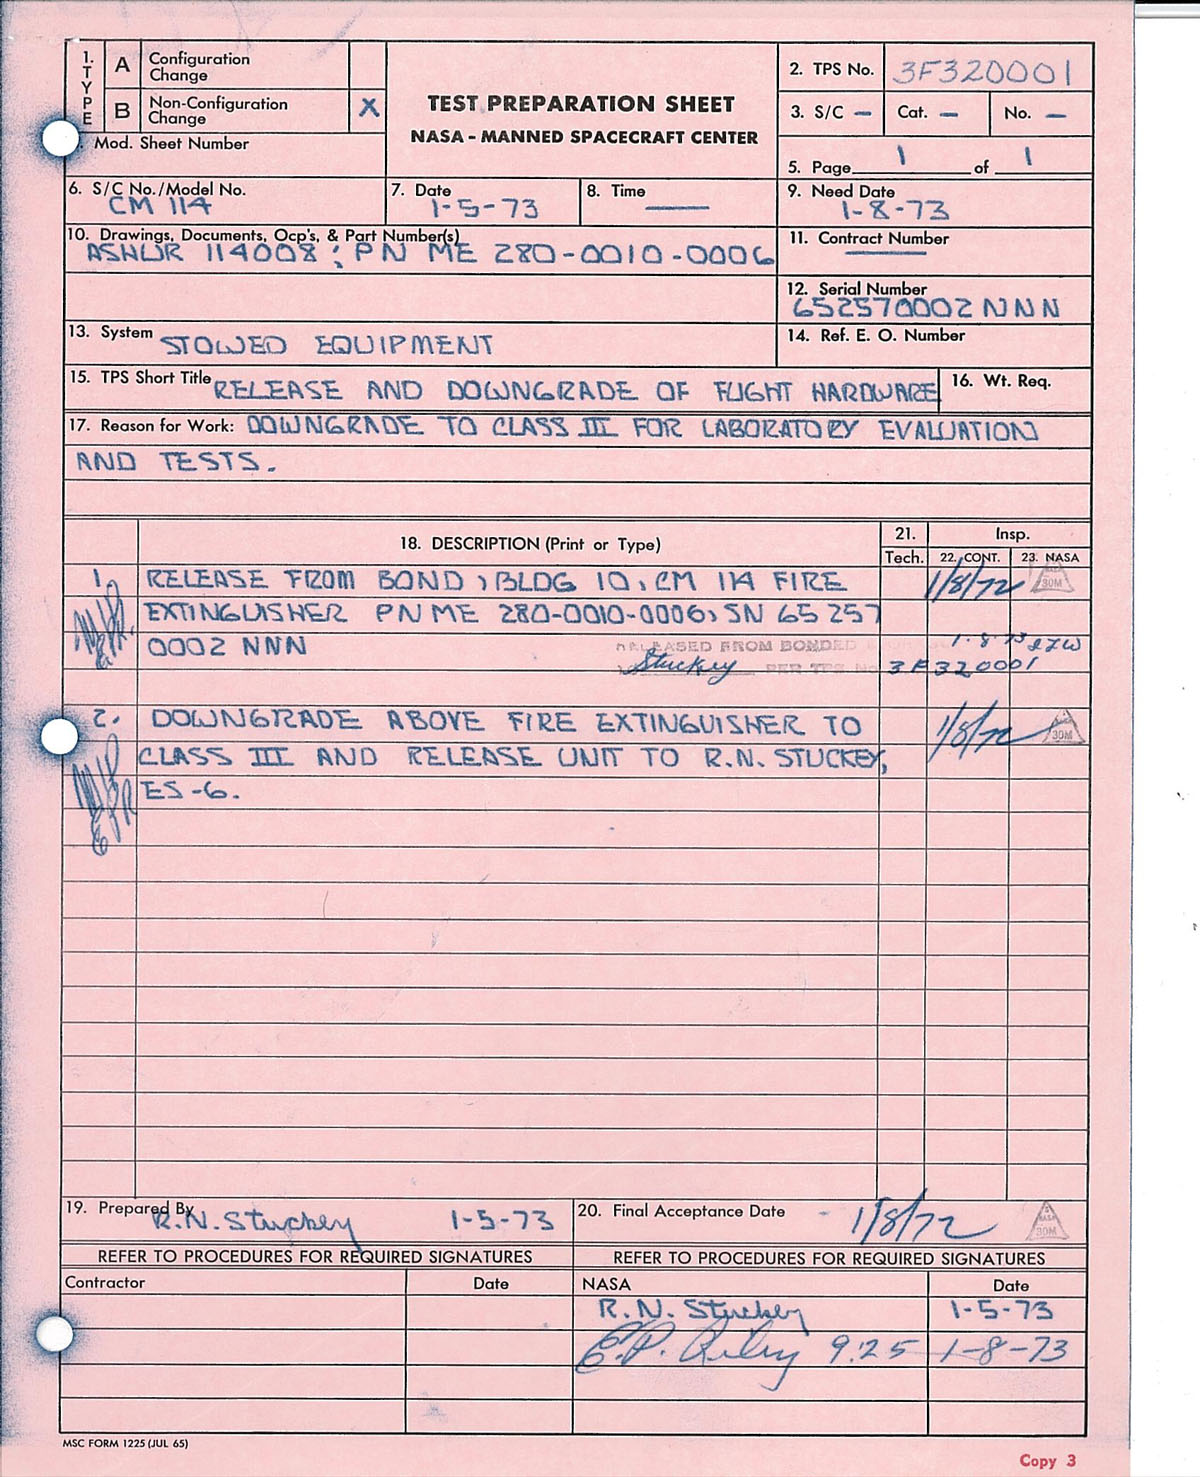 1. TYPE
A Configuration Change
B Non-Configuration Change X
Mod. Sheet Number
TEST PREPARATION SHEET
NASA - MANNED SPACECRAFT CENTER
2. TPS No. 3F320001
3. S/C — Cat. — No. —
5. Page 1 of 1
6. S/C No./Model No.
CM 114
7. Date
1-5-73
8. Time
—
9. Need Date
1-8-73
10. Drawings, Documents, Ocp's, & Part Number(s)
ASHUR 114008; PN ME 280-0010-0006
11. Contract Number
—
12. Serial Number
652570002 NNN
13. System STOWED EQUIPMENT
14. Ref. E. O. Number
15. TPS Short Title RELEASE AND DOWNGRADE OF FLIGHT HARDWARE
16. Wt. Req.
17. Reason for Work: DOWNGRADE TO CLASS III FOR LABORATORY EVALUATION
AND TESTS.
18. DESCRIPTION (Print or Type)
21. Tech.
Insp.
22. CONT. 23. NASA
1. RELEASE FROM BOND, BLDG 10, CM 114 FIRE 1/8/72 NASA 30M
EXTINGUISHER PN ME 280-0010-0006, SN 65 257
0002 NNN
RELEASED FROM BONDED 1-8-73
Stuckey PER TPS No 3F320001
2. DOWNGRADE ABOVE FIRE EXTINGUISHER TO 1/8/72 NASA 30M
CLASS III AND RELEASE UNIT TO R.N. STUCKEY,
ES-6.
19. Prepared By
R.N. Stuckey 1-5-73
20. Final Acceptance Date 1/8/72 NASA 30M
REFER TO PROCEDURES FOR REQUIRED SIGNATURES
REFER TO PROCEDURES FOR REQUIRED SIGNATURES
Contractor Date NASA Date
R.N. Stuckey 1-5-73
E.P. 9:25 1-8-73
MSC FORM 1225 (JUL 65)
Copy 3